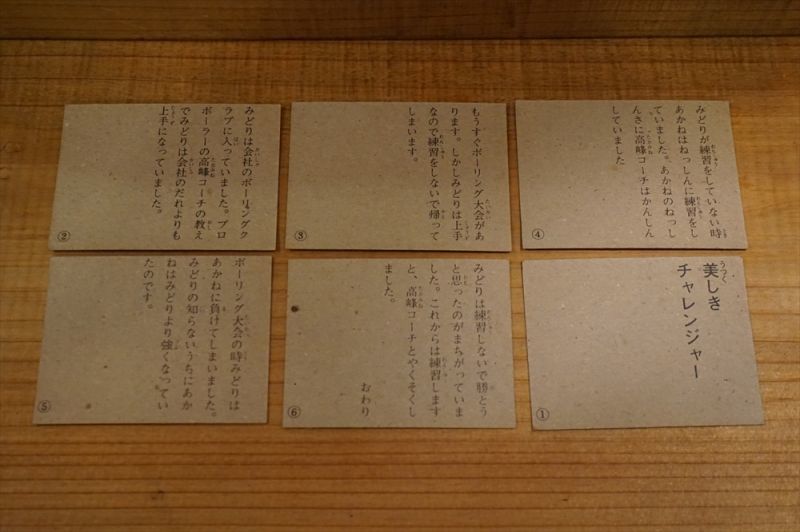 美しき
チャレンジャー
①
みどりは会社のボーリングク
ラブに入っていました。プロ
ボーラーの高峰コーチの教え
でみどりは会社のだれよりも
上手になっていました。
②
もうすぐボーリング大会があ
ります。しかしみどりは上手
なので練習をしないで帰って
しまいます。
③
みどりが練習をしていない時
あかねはねっしんに練習をし
ていました。あかねのねっし
んさに高峰コーチはかんしん
していました
④
ボーリング大会の時みどりは
あかねに負けてしまいました。
みどりの知らないうちにあか
ねはみどりより強くなってい
たのです。
⑤
みどりは練習しないで勝とう
と思ったのがまちがっていま
した。これからは練習します
と、高峰コーチとやくそくし
ました。
おわり
⑥